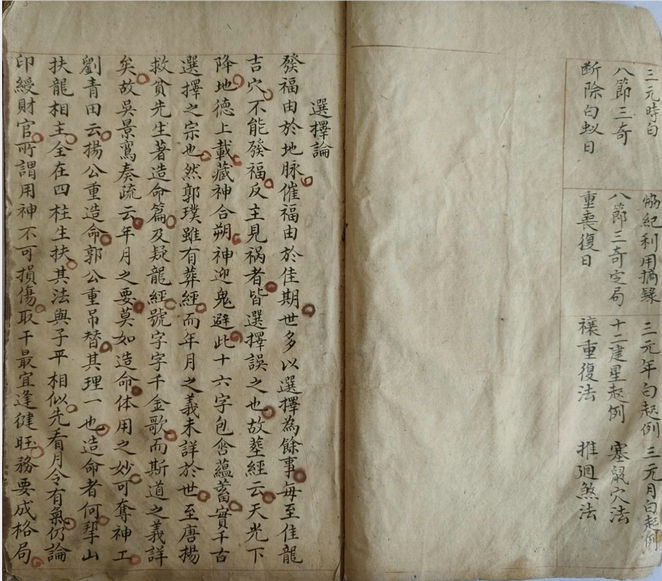 三元時白　協紀利用摘錄　三元年白起例　三元月白起例
八節三奇　八節三奇定局　十二建星起例　塞鼠穴法
断除白蚁日　重喪復日　禳重復法　推廻煞法
選擇論
發福由於地脉催福由於佳期世多以選擇為餘事每至佳龍
吉穴不能發福反主見祸者皆選擇誤之也故塟經云天光下
降地德上載藏神合朔神迎鬼避此十六字包含蘊蓄實千古
選擇之宗也然郭璞雖有葬經而年月之義未詳於世至唐揚
救貧先生著造命篇及疑龍經號字字千金歌而斯道之義詳
矣故吴景鸞奏疏云年月之要莫如造命体用之妙可奪神工
劉青田云揚公重造命郭公重吊替其理一也造命者何挈山
扶龍相主全在四柱生扶其法與子平相似先看月令有氣仍論
印綬財官所謂用神不可損傷取干最宜逢徤旺務要成格局